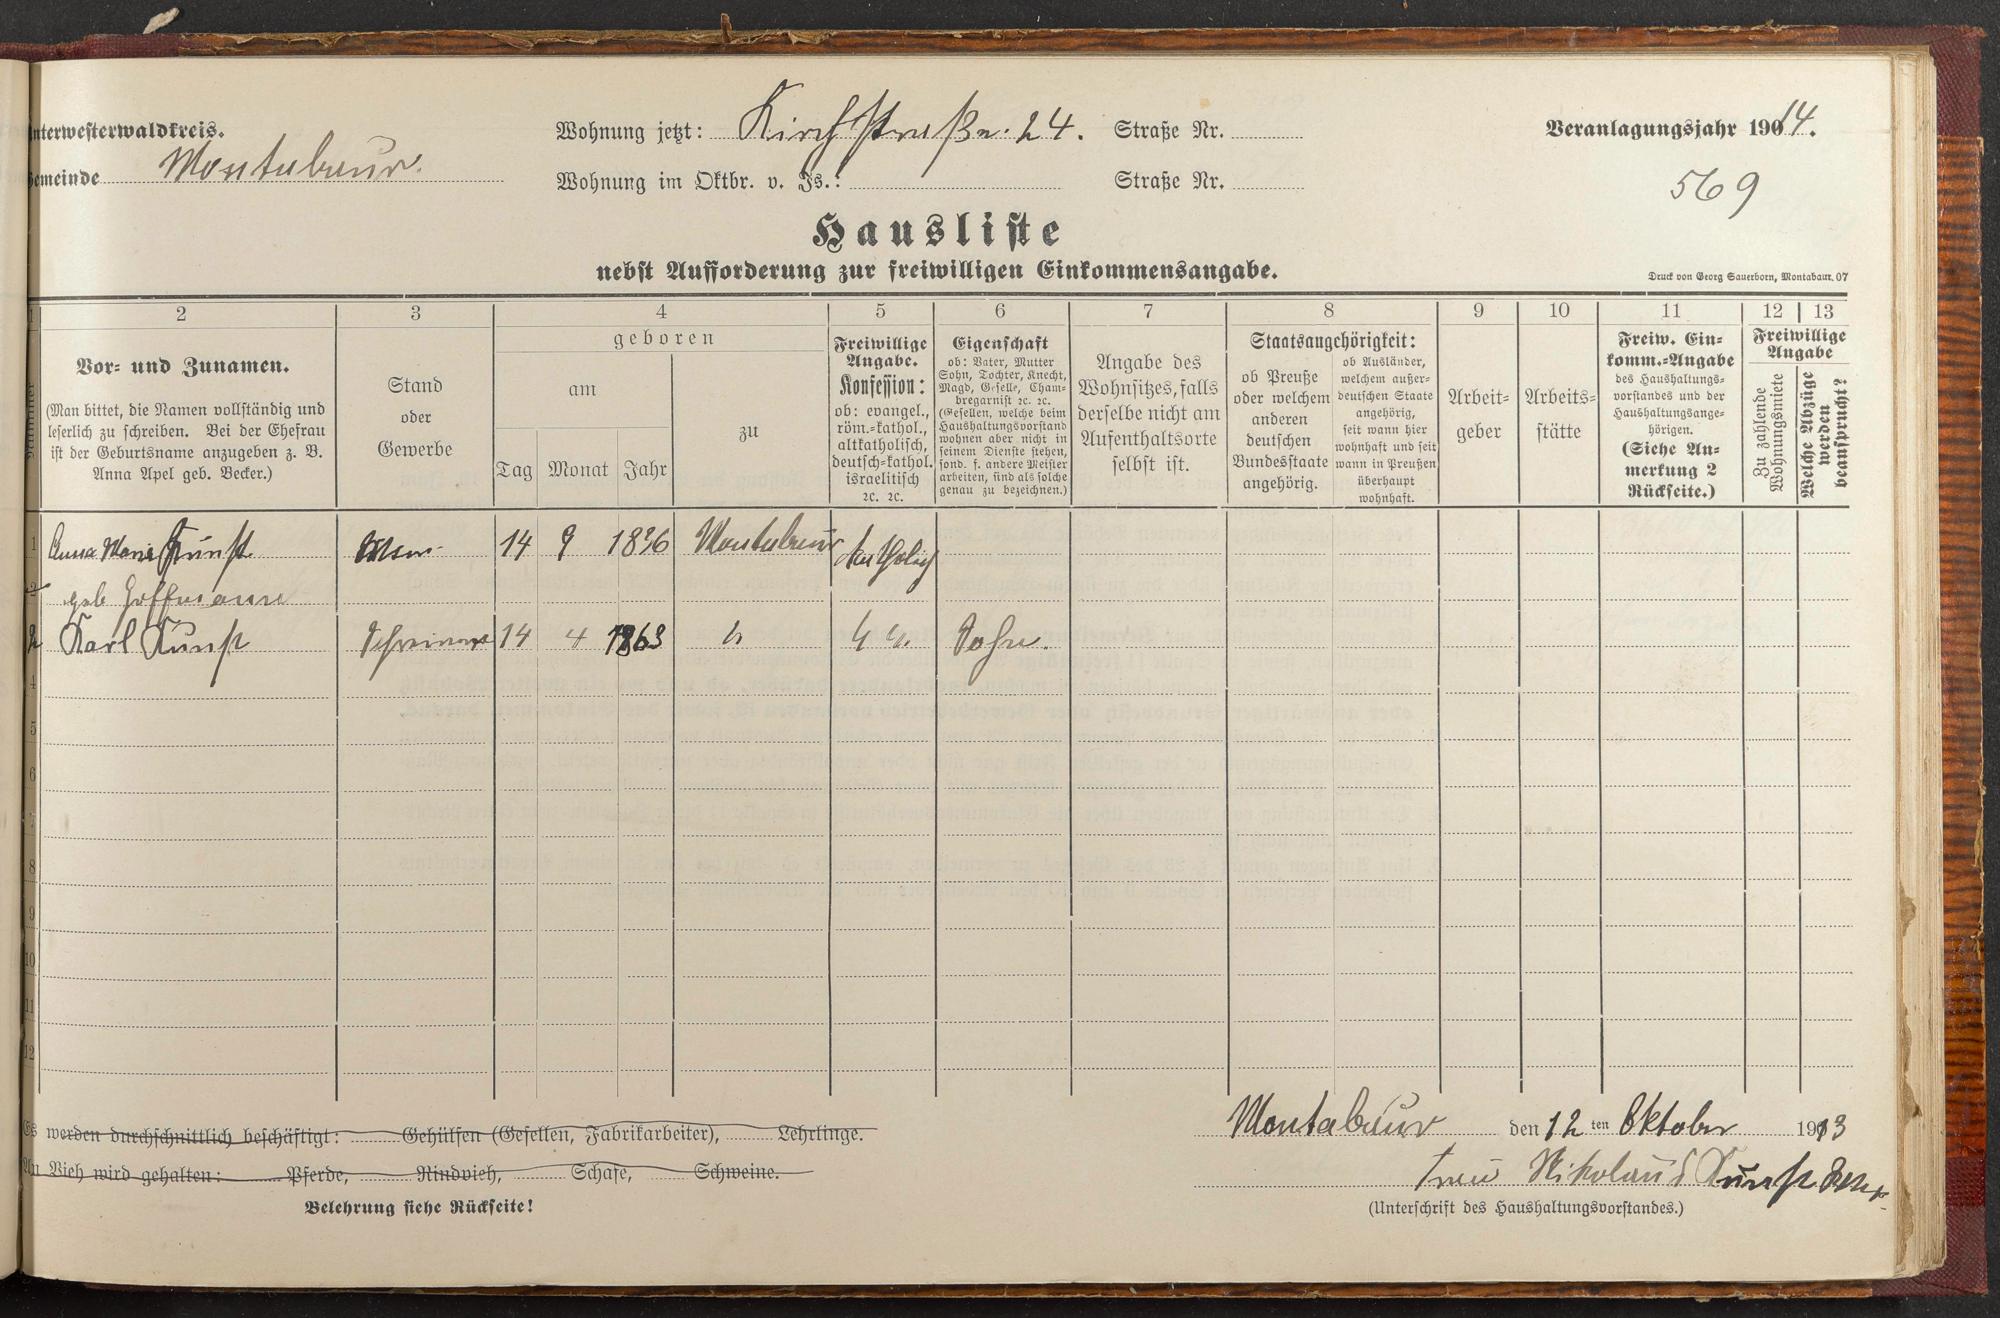 Unterwesterwaldkreis.
Gemeinde Montabaur.
Wohnung jetzt: Kirchstraße. 24. Straße Nr.
Wohnung im Oktbr. v. Js.: Straße Nr.
Veranlagungsjahr 1914.
569
Hausliste
nebst Aufforderung zur freiwilligen Einkommensangabe.
Druck von Georg Sauerborn, Montabaur. 07
1 2 3 4 5 6 7 8 9 10 11 12 13
Nummer
Vor- und Zunamen.
(Man bittet, die Namen vollständig und
leserlich zu schreiben. Bei der Ehefrau
ist der Geburtsname anzugeben z. B.
Anna Apel geb. Becker.)
Stand
oder
Gewerbe
geboren
am
Tag Monat Jahr
zu
Freiwillige
Angabe.
Konfession:
ob: evangel.,
röm.-kathol.,
altkatholisch,
deutsch-kathol.
israelitisch
ꝛc. ꝛc.
Eigenschaft
ob: Vater, Mutter
Sohn, Tochter, Knecht,
Magd, Geselle, Cham-
bregarnist ꝛc. ꝛc.
(Gesellen, welche beim
Haushaltungsvorstand
wohnen aber nicht in
seinem Dienste stehen,
sond. f. andere Meister
arbeiten, sind als solche
genau zu bezeichnen.)
Angabe des
Wohnsitzes, falls
derselbe nicht am
Aufenthaltsorte
selbst ist.
Staatsangehörigkeit:
ob Preuße
oder welchem
anderen
deutschen
Bundesstaate
angehörig.
ob Ausländer,
welchem außer-
deutschen Staate
angehörig,
seit wann hier
wohnhaft und seit
wann in Preußen
überhaupt
wohnhaft.
Arbeit-
geber
Arbeits-
stätte
Freiw. Ein-
komm.-Angabe
des Haushaltungs-
vorstandes und der
Haushaltungsange-
hörigen.
(Siehe An-
merkung 2
Rückseite.)
Freiwillige
Angabe
Zu zahlende
Wohnungsmiete
Welche Abzüge
werden
beansprucht?
1 Anna Maria Kunst 14 9 1836 Montabaur katholisch
2 geb Hoffmann
2 Karl Kunst Schreiner 14 4 1863 " " " Sohn.
4
5
6
7
8
9
10
11
12
Es werden durchschnittlich beschäftigt: Gehülfen (Gesellen, Fabrikarbeiter), Lehrlinge.
An Vieh wird gehalten: Pferde, Rindvieh, Schafe, Schweine.
Belehrung siehe Rückseite!
Montabaur den 12 ten Oktober 1913
Frau Nikolaus Kunst
(Unterschrift des Haushaltungsvorstandes.)